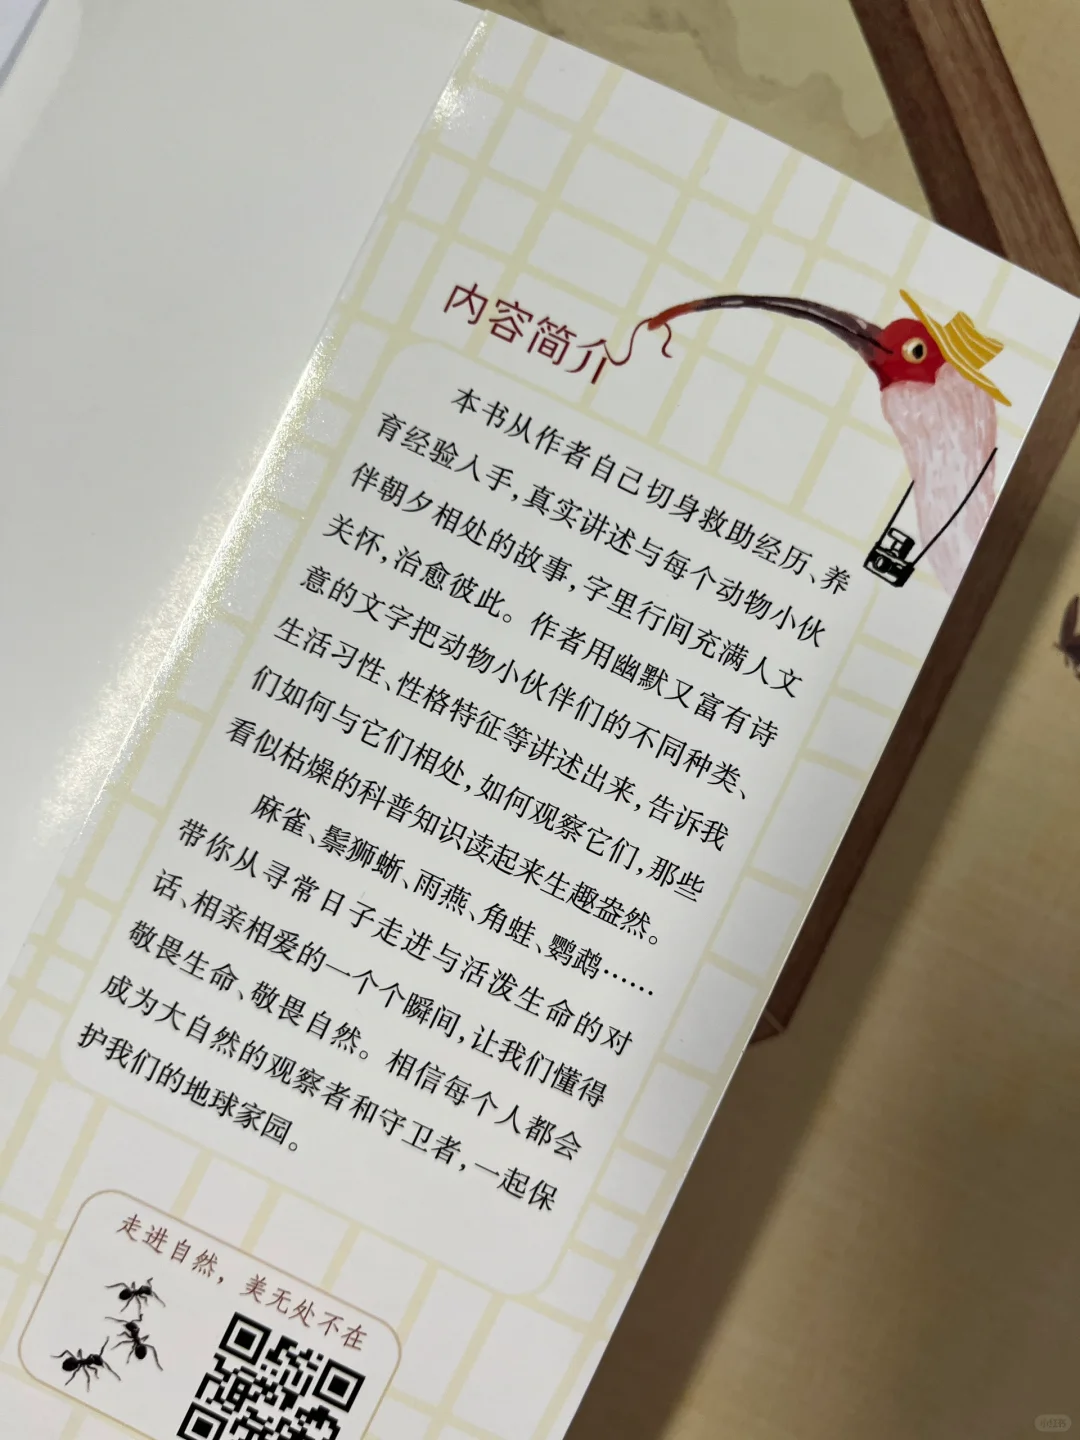 内容简介
本书从作者自己切身救助经历、养
育经验入手，真实讲述与每个动物小伙
伴朝夕相处的故事，字里行间充满人文
关怀，治愈彼此。作者用幽默又富有诗
意的文字把动物小伙伴们的不同种类、
生活习性、性格特征等讲述出来，告诉我
们如何与它们相处，如何观察它们，那些
看似枯燥的科普知识读起来生趣盎然。
麻雀、鬃狮蜥、雨燕、角蛙、鹦鹉……
带你从寻常日子走进与活泼生命的对
话、相亲相爱的一个个瞬间，让我们懂得
敬畏生命、敬畏自然。相信每个人都会
成为大自然的观察者和守卫者，一起保
护我们的地球家园。
走进自然，美无处不在